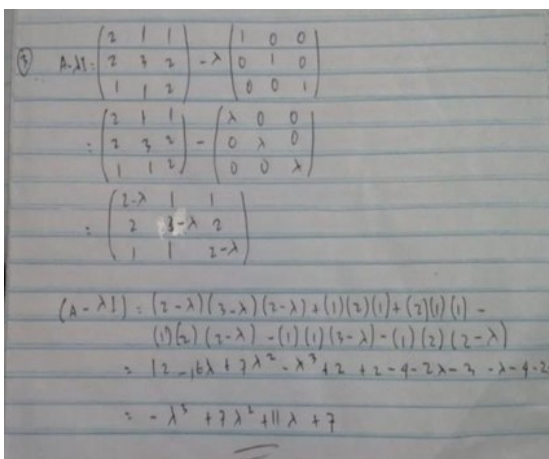 ③ A-λI = (2 1 1
2 3 2
1 1 2) - λ (1 0 0
0 1 0
0 0 1)
= (2 1 1
2 3 2
1 1 2) - (λ 0 0
0 λ 0
0 0 λ)
= (2-λ 1 1
2 3-λ 2
1 1 2-λ)
(A - λI) = (2-λ)(3-λ)(2-λ) + (1)(2)(1) + (2)(1)(1) -
(1)(2)(2-λ) - (1)(1)(3-λ) - (1)(2)(2-λ)
= 12 - 16λ + 7λ² - λ³ + 2 + 2 - 4 - 2λ - 3 - λ - 4 - 2
= - λ³ + 7λ² + 11λ + 7